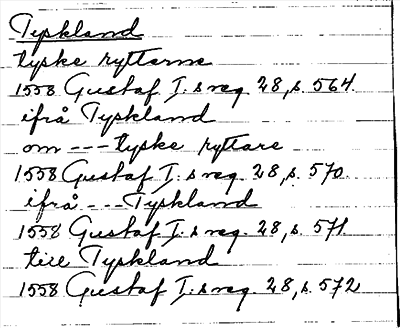 Tyskland
tyske ryttarne
1558 Gustaf I:s reg. 28, s. 564.
ifrå Tyskland
om --- tyske ryttare
1558 Gustaf I:s reg. 28, s. 570.
ifrå --- Tyskland
1558 Gustaf I:s reg. 28, s. 571
till Tyskland
1558 Gustaf I:s reg. 28, s. 572